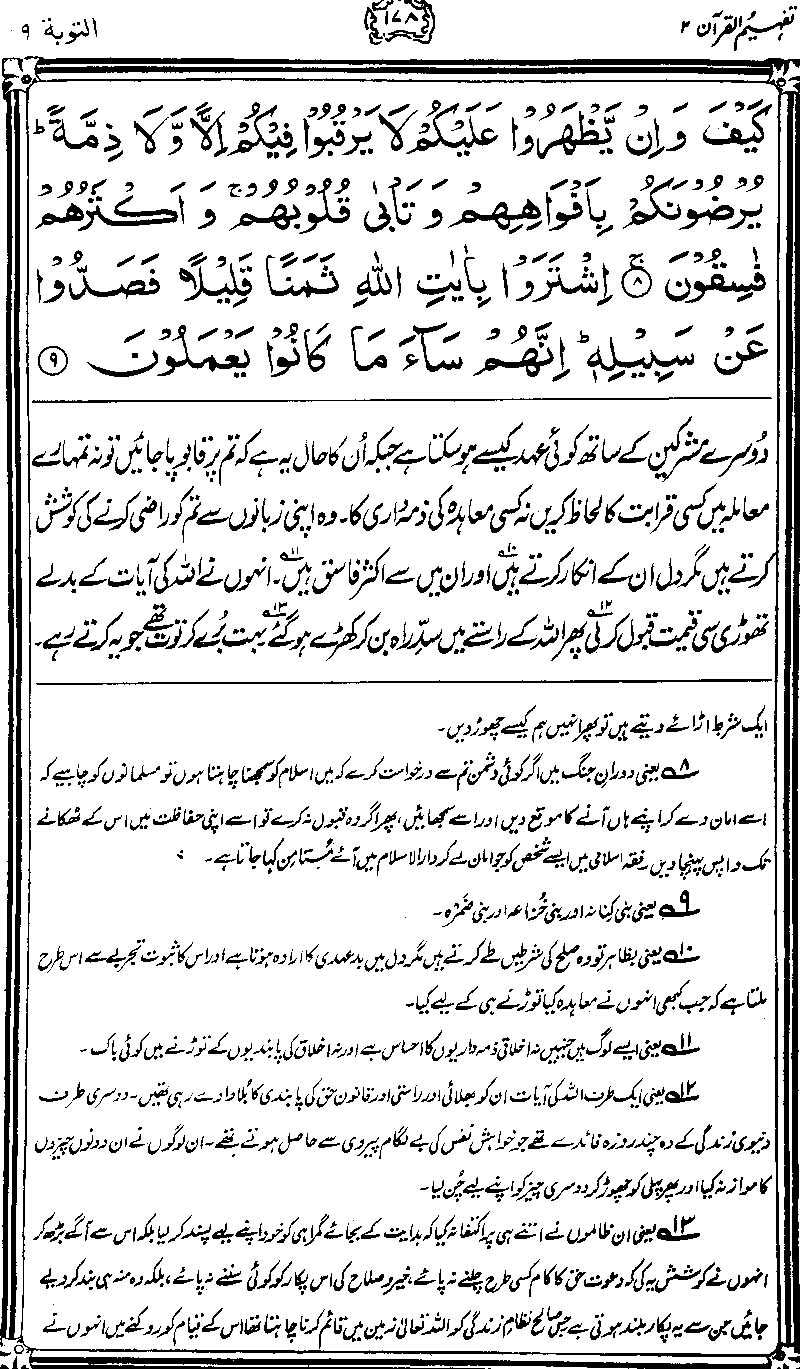 تفہیم القرآن ۲
۱۷۸
التوبة ۹
كَيْفَ وَاِنْ يَّظْهَرُوْا عَلَيْكُمْ لَا يَرْقُبُوْا فِيْكُمْ اِلًّا وَّلَا ذِمَّةً ؕ
يُرْضُوْنَكُمْ بِاَفْوَاهِهِمْ وَتَاْبٰى قُلُوْبُهُمْ ۚ وَاَكْثَرُهُمْ
فٰسِقُوْنَ ۚ ﴿۸﴾ اِشْتَرَوْا بِاٰيٰتِ اللّٰهِ ثَمَنًا قَلِيْلًا فَصَدُّوْا
عَنْ سَبِيْلِهٖ ؕ اِنَّهُمْ سَآءَ مَا كَانُوْا يَعْمَلُوْنَ ﴿۹﴾
دُوسرے مشرکین کے ساتھ کوئی عہد کیسے ہو سکتا ہے جبکہ اُن کا حال یہ ہے کہ تم پر قابو پا جائیں تو نہ تمہارے
معاملہ میں کسی قرابت کا لحاظ کریں نہ کسی معاہدہ کی ذمہ داری کا۔ وہ اپنی زبانوں سے تم کو راضی کرنے کی کوشش
کرتے ہیں مگر دل ان کے انکار کرتے ہیں۱۰ اور ان میں سے اکثر فاسق ہیں۱۱۔ انہوں نے اللہ کی آیات کے بدلے
تھوڑی سی قیمت قبول کر لی۱۲ پھر اللہ کے راستے میں سدِّ راہ بن کر کھڑے ہو گئے۱۳۔ بہت بُرے کرتوت تھے جو یہ کرتے رہے۔
ایک شرط اڑائے دیتے ہیں تو پھر انہیں ہم کیسے چھوڑ دیں۔
۸ یعنی دورانِ جنگ میں اگر کوئی دشمن تم سے درخواست کرے کہ میں اسلام کو سمجھنا چاہتا ہوں تو مسلمانوں کو چاہیے کہ
اسے امان دے کر اپنے ہاں آنے کا موقع دیں اور اسے سمجھائیں، پھر اگر وہ قبول نہ کرے تو اسے اپنی حفاظت میں اس کے ٹھکانے
تک واپس پہنچا دیں۔ فقہ اسلامی میں ایسے شخص کو جو امان لے کر دارالاسلام میں آئے مُستامن کہا جاتا ہے۔
۹ یعنی بنی کنانہ اور بنی خُزاعہ اور بنی ضَمرَہ۔
۱۰ یعنی بظاہر تو وہ صلح کی شرطیں طے کرتے ہیں مگر دل میں بدعہدی کا ارادہ ہوتا ہے اور اس کا ثبوت تجربے سے اس طرح
ملتا ہے کہ جب کبھی انہوں نے معاہدہ کیا توڑنے ہی کے لیے کیا۔
۱۱ یعنی ایسے لوگ ہیں جنہیں نہ اخلاقی ذمہ داریوں کا احساس ہے اور نہ اخلاق کی پابندیوں کے توڑنے میں کوئی باک۔
۱۲ یعنی ایک طرف اللہ کی آیات ان کو بھلائی اور راستی اور قانونِ حق کی پابندی کا بُلاوا دے رہی تھیں۔ دوسری طرف
دنیوی زندگی کے وہ چند روزہ فائدے تھے جو خواہشِ نفس کی بے لگام پیروی سے حاصل ہوتے تھے۔ ان لوگوں نے ان دونوں چیزوں
کا موازنہ کیا اور پھر پہلی کو چھوڑ کر دوسری چیز کو اپنے لیے چُن لیا۔
۱۳ یعنی ان ظالموں نے اتنے ہی پر اکتفا نہ کیا کہ ہدایت کے بجائے گمراہی کو خود اپنے لیے پسند کر لیا بلکہ اس سے آگے بڑھ کر
انہوں نے کوشش یہ کی کہ دعوتِ حق کا کام کسی طرح چلنے نہ پائے، خیر و صلاح کی اس پکار کو کوئی سننے نہ پائے، بلکہ وہ منہ ہی بند کر دیے
جائیں جن سے یہ پکار بلند ہوتی ہے۔ جس صالح نظامِ زندگی کو اللہ تعالیٰ زمین میں قائم کرنا چاہتا تھا اس کے قیام کو روکنے میں انہوں نے